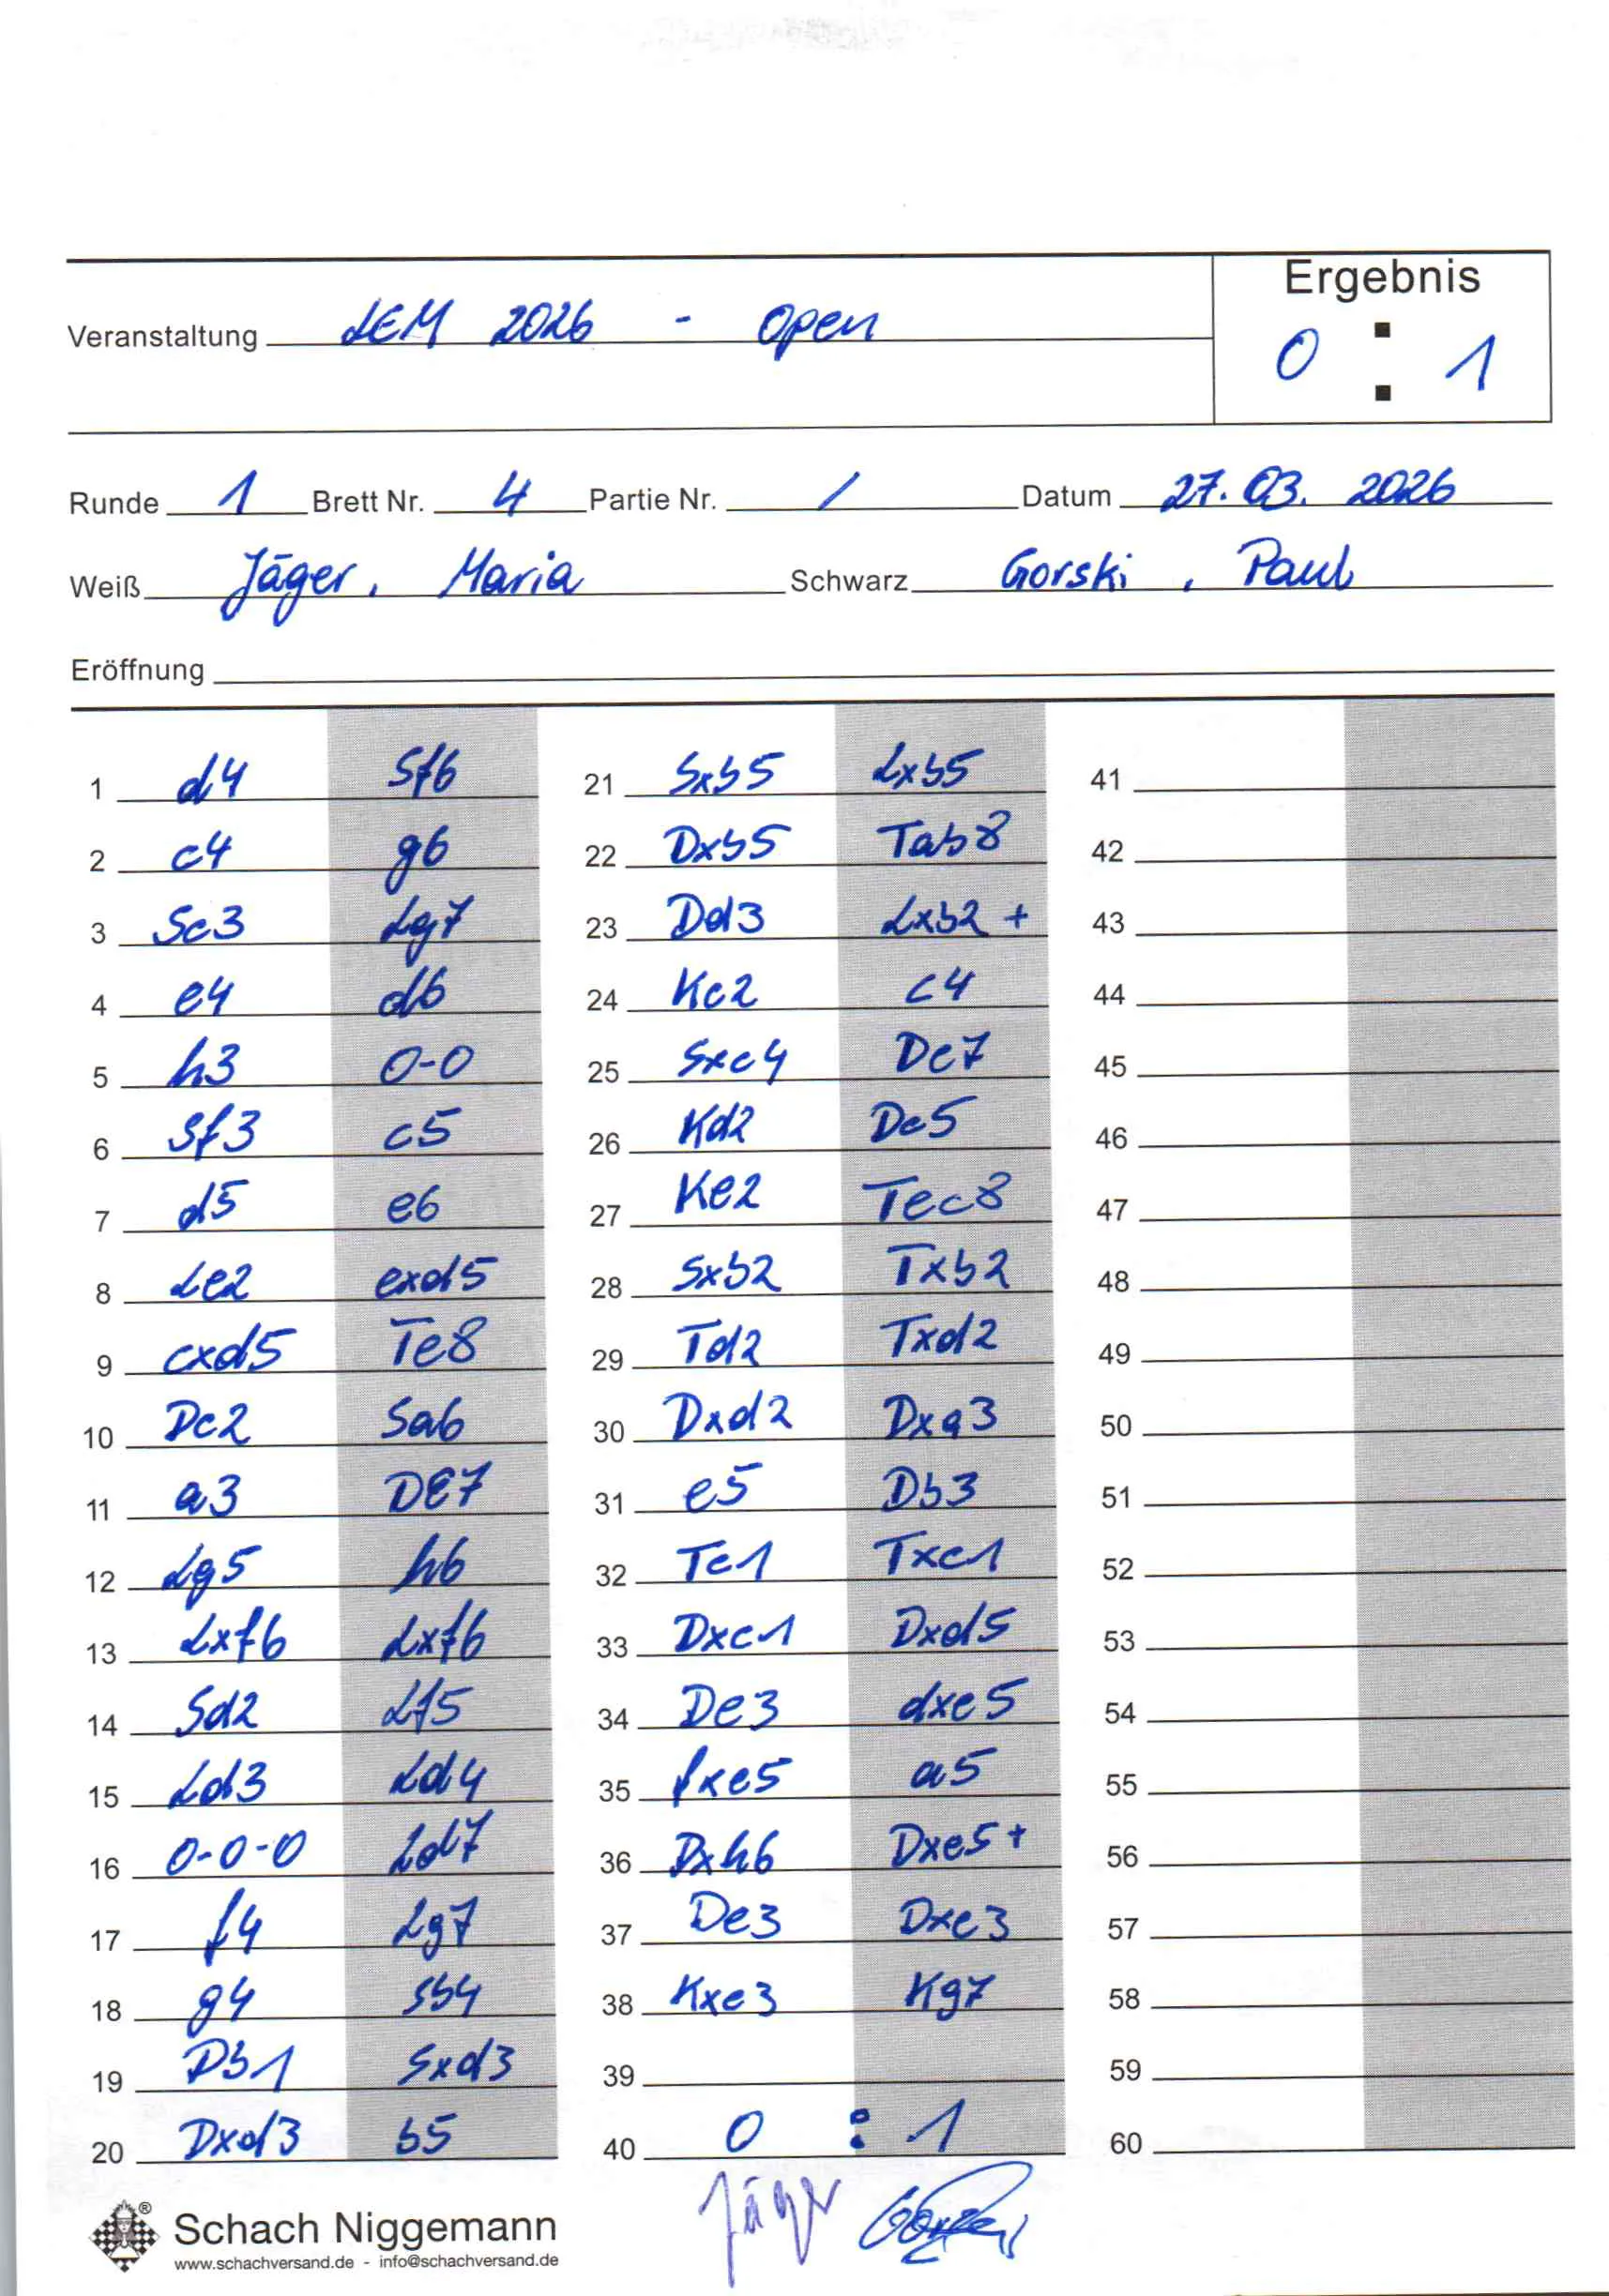 Ergebnis
Veranstaltung LEM 2026 - Open
0 : 1
Runde 1 Brett Nr. 4 Partie Nr. / Datum 27.03.2026
Weiß Jäger, Maria Schwarz Gorski, Paul
Eröffnung
1 d4 Sf6 21 Sxb5 Lxb5 41
2 c4 g6 22 Dxb5 Tab8 42
3 Sc3 Lg7 23 Dd3 Lxb2+ 43
4 e4 d6 24 Kc2 c4 44
5 h3 0-0 25 Sxc4 Dc7 45
6 Sf3 c5 26 Kd2 Dc5 46
7 d5 e6 27 Ke2 Tec8 47
8 Le2 exd5 28 Sxb2 Txb2 48
9 cxd5 Te8 29 Td2 Txd2 49
10 Dc2 Sa6 30 Dxd2 Dxa3 50
11 a3 DE7 31 e5 Db3 51
12 Lg5 h6 32 Tc1 Txc1 52
13 Lxf6 Lxf6 33 Dxc1 Dxd5 53
14 Sd2 Lf5 34 De3 dxe5 54
15 Ld3 Ld4 35 fxe5 a5 55
16 0-0-0 Ld7 36 Dxh6 Dxe5+ 56
17 f4 Lg7 37 De3 Dxe3 57
18 g4 Sb4 38 Kxe3 Kg7 58
19 Db1 Sxd3 39 59
20 Dxd3 b5 40 0 : 1 60
Jäger
®
Schach Niggemann
www.schachversand.de - info@schachversand.de